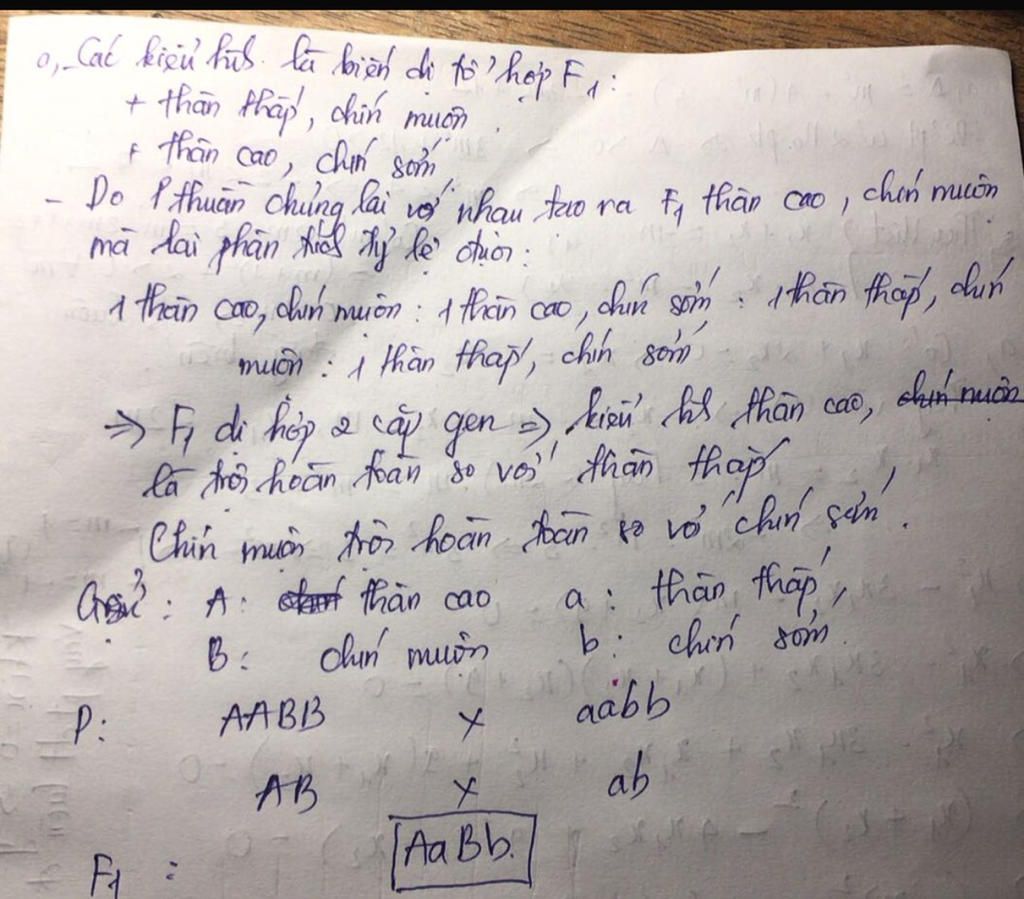 a, - Các kiểu hh là biến dị tổ hợp F1 :
+ thân thấp, chín muộn
+ thân cao, chín sớm
- Do P thuần chủng lai vớ nhau tạo ra F1 thân cao, chín muộn
mà lai phân tích tỷ lệ đươi :
1 thân cao, chín muộn : 1 thân cao, chín sớm : 1 thân thấp, chín
muộn : 1 thân thấp, chín sớm
=> F1 dị hợp 2 cặp gen => kiểu hh thân cao, chín muộn
là trội hoàn toàn so với thân thấp
Chín muộn trội hoàn toàn so vớ chín sớm.
A : thân cao a : thân thấp,
B : chín muộn b : chín sớm.
P : AABB x aabb
AB x ab
F1 : AaBb.